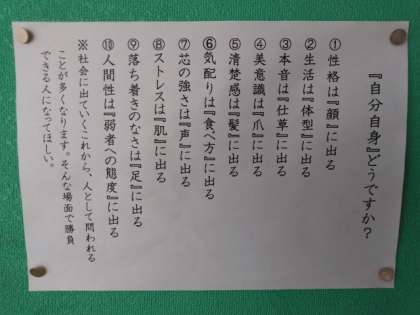 『自分自身』どうですか？
①性格は『顔』に出る
②生活は『体型』に出る
③本音は『仕草』に出る
④美意識は『爪』に出る
⑤清楚感は『髪』に出る
⑥気配りは『食べ方』に出る
⑦芯の強さは『声』に出る
⑧ストレスは『肌』に出る
⑨落ち着きのなさは『足』に出る
⑩人間性は『弱者への態度』に出る
※社会に出ていくこれから、人として問われる
ことが多くなります。そんな場面で勝負
できる人になってほしい。